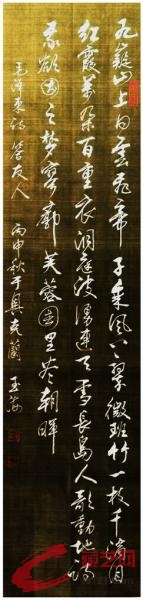 九嶷山上白雲飛帝子乘風下翠微斑竹一枝千滴泪
红霞萬朵百重衣洞庭波涌連天雪長島人歌動地诗
我欲因之梦寥廓芙蓉国里尽朝晖
毛泽东诗答友人 丙申秋于